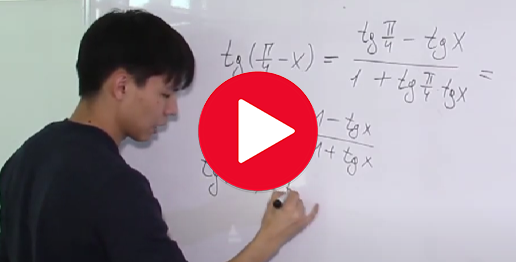 tg(π/4 - x) = (tg π/4 - tg x)/(1 + tg π/4 · tg x) =
(1 - tg x)/(1 + tg x)
tg